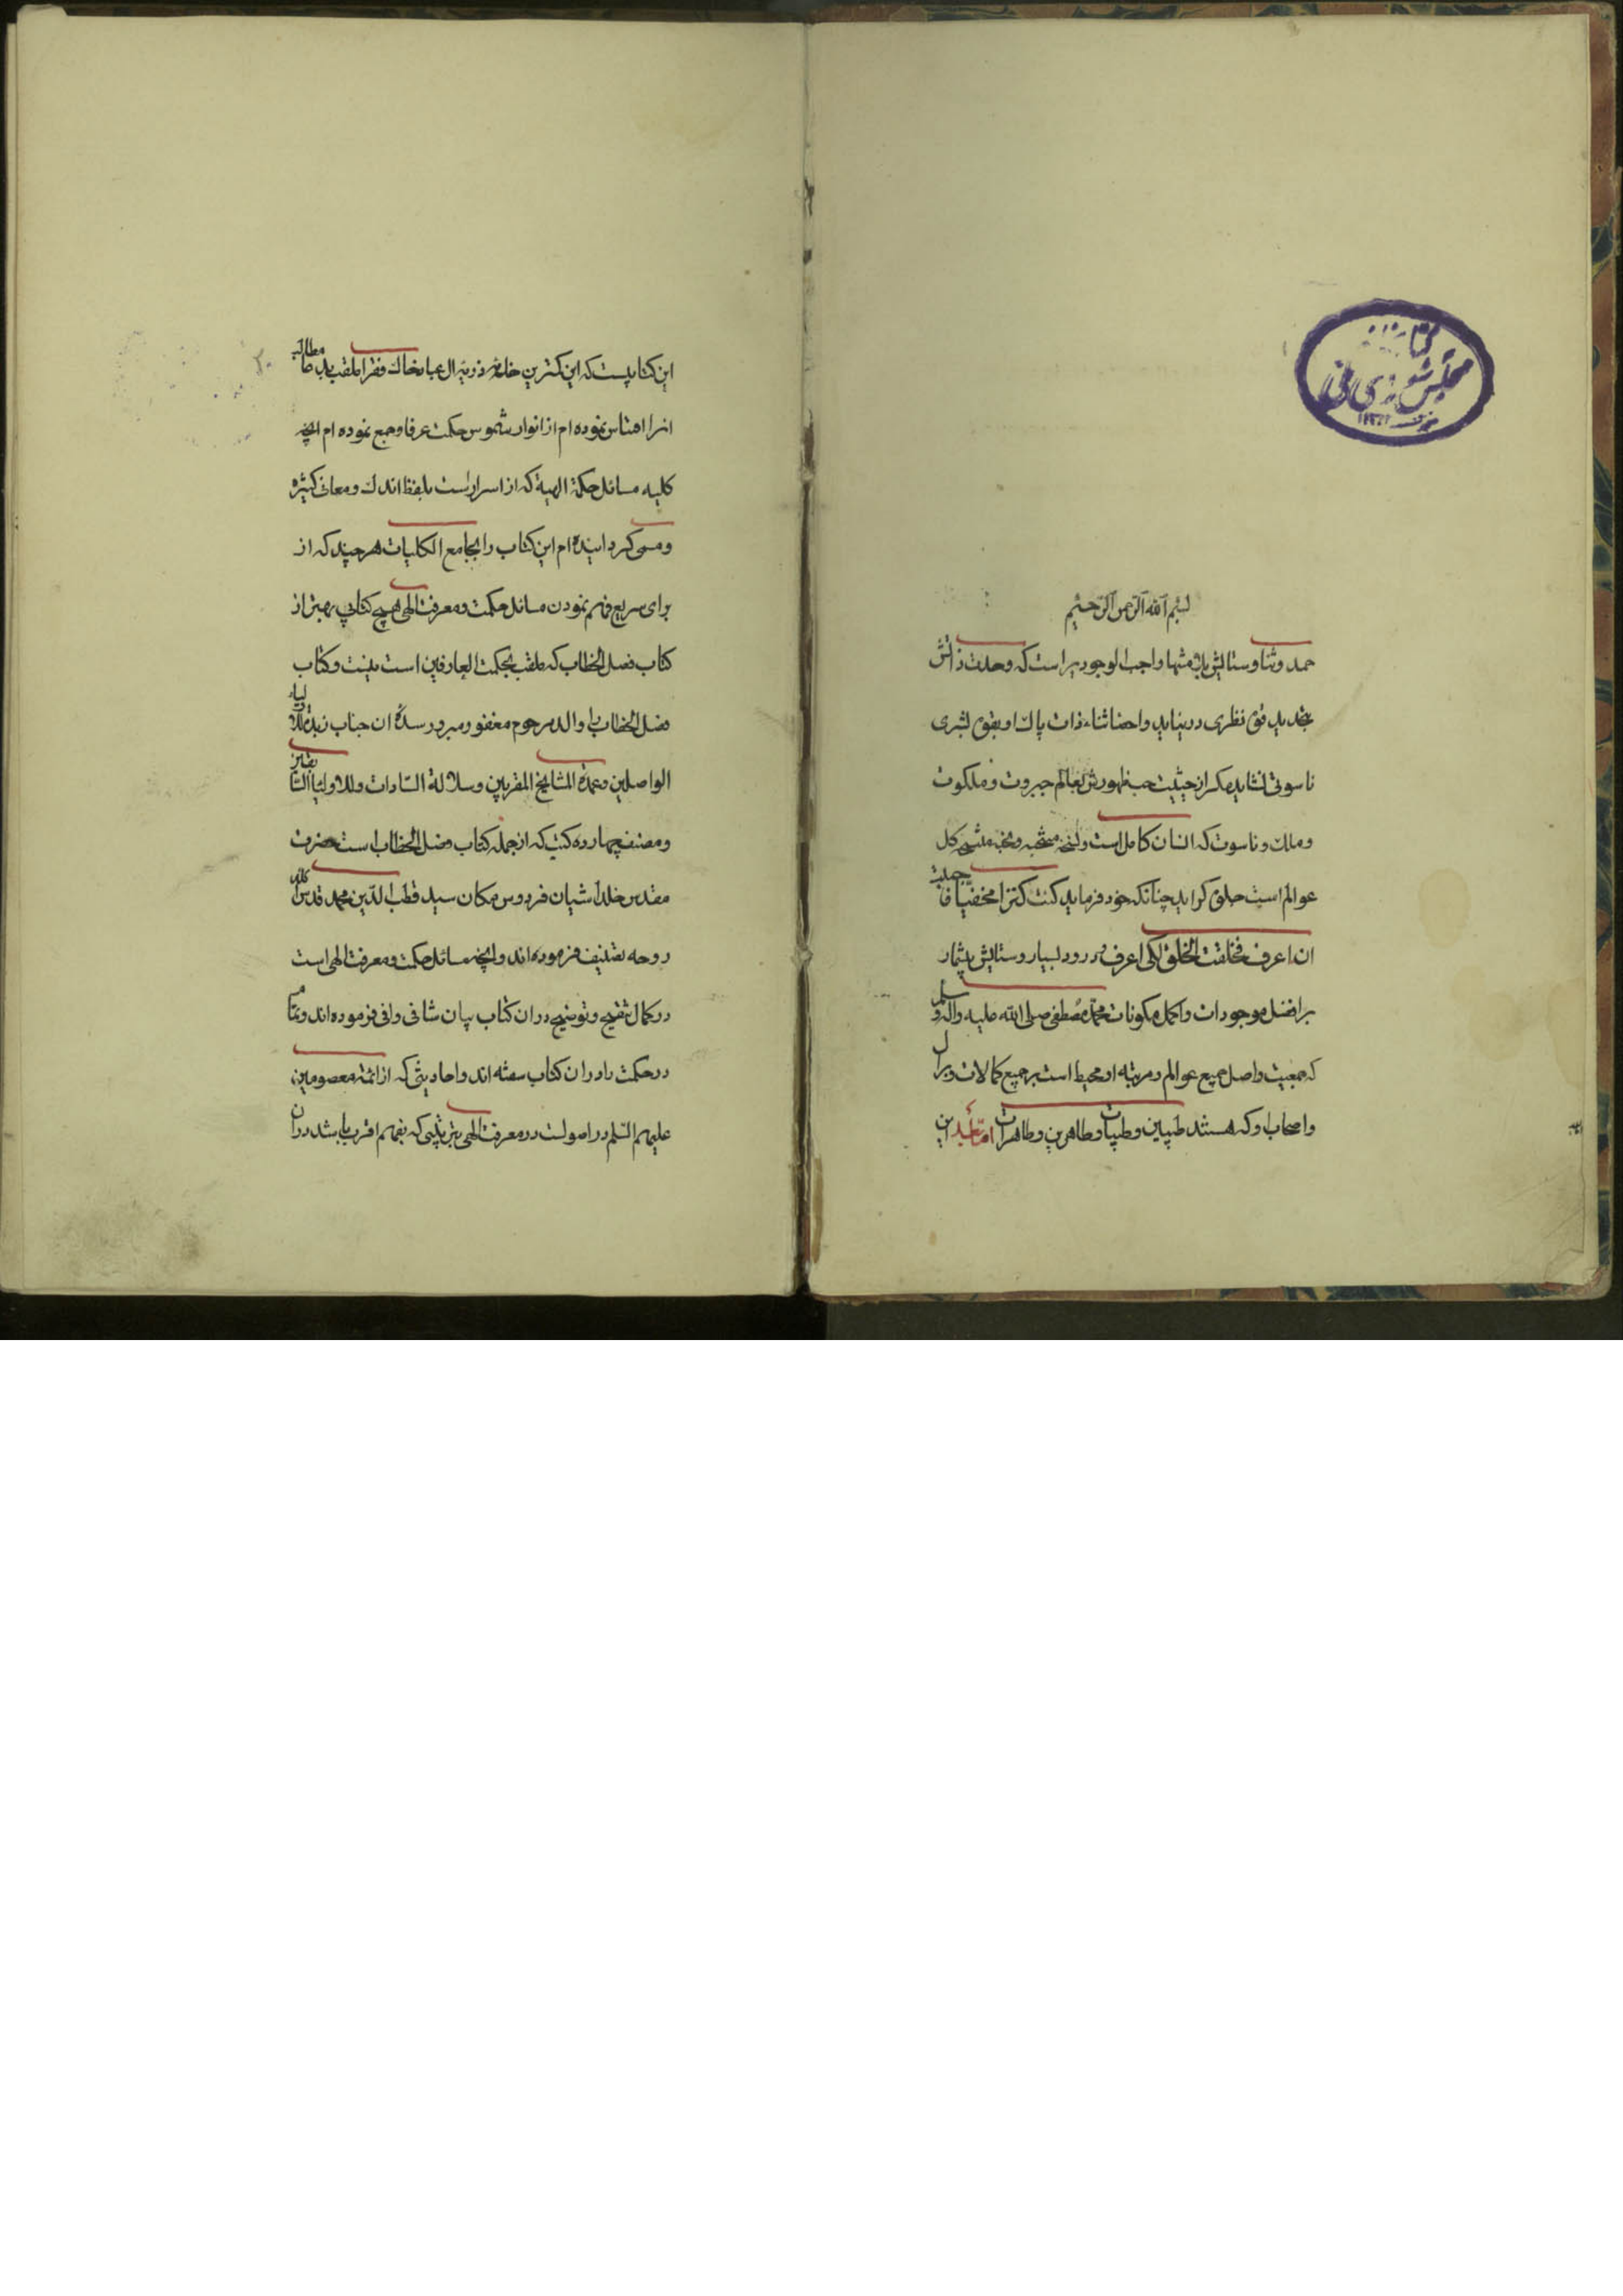 کتابخانه
مجلس شورای ملی
بسم الله الرحمن الرحیم
حمد و ثنا و ستایش بلا منتها واجب الوجودیرا است که وحدت ذاتش
بتحدید قوی نظری در نیاید و احصا ثناء ذات پاک او بقوی بشری
ناسوتی نشاید مکر از حیثیت حب ظهورش بعالم جبروت و ملکوت
و ملک و ناسوت که انسان کامل است و نسخه منتخبه کل
عوالم است جلوه کر اید چنانکه خود فرماید کنت کنزا مخفیا فاحببت
ان اعرف فخلقت الخلق لکی اعرف و درود بسیار و ستایش بیشمار
بر افضل موجودات و اکمل مکونات محمد مصطفی صلی الله علیه واله وسلم
که جمعیت و اصل جمیع عوالم و مرتبه او محیط است بر جمیع کمالات و بر ال
و اصحاب او که هستند طیبین و طیبات و طاهرین و طاهرات اما بعد این
این کتابیست که این کمترین ذریه ال عبا خاک فقرا ملقب
انرا اقتباس نموده ام از انوار شموس حکمت عرفا و جمع نموده ام انچه
کلیه مسائل حکمة الهیة که از اسرار است بلفظ اندک و معانی کثیره
و مسمی کردانیده ام این کتاب را بجامع الکلیات هر چند که از
برای سریع فهم نمودن مسائل حکمت و معرفت الهی هیچ کتابی بهتر از
کتاب فصل الخطاب که ملقب بحکمت العارفین است نیست و کتاب
فصل الخطاب را والد مرحوم مغفور مبرور ان جناب زبدة الاولیاء
الواصلین و عمدة المشایخ المقربین و سلالة السادات و للاولیا
و مصنف چهارده کتب که از جمله کتاب فصل الخطاب است حضرت
مقدس خلد اشیان فردوس مکان سید قطب الدین محمد قدس الله
روحه تصنیف فرموده اند و انچه مسائل حکمت و معرفت الهی است
در کمال تنقیح و توضیح در ان کتاب بیان شافی وافی فرموده اند و
در حکمت را در ان کتاب سفته اند و احادیثی که از ائمه معصومین
علیهم السلم در اصولست در معرفت الهی بترتیبی که بفهم اقرب باشد در ان